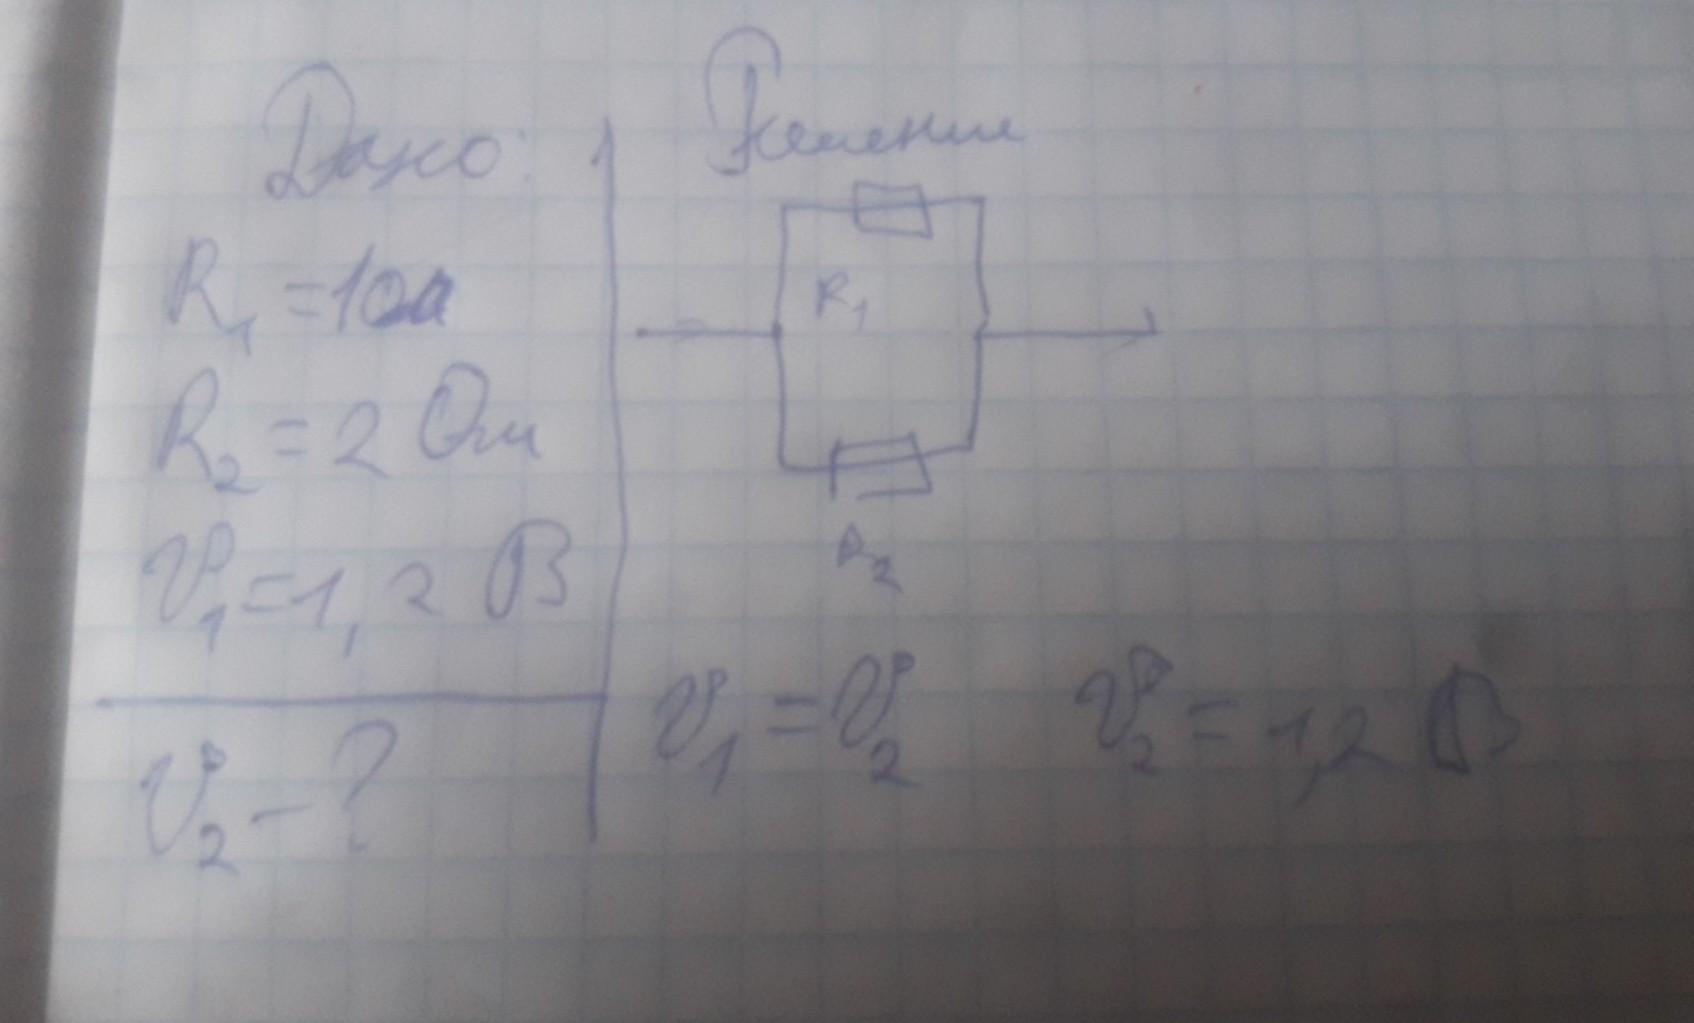 Дано:
R₁ = 1 Ом
R₂ = 2 Ом
U₁ = 1,2 В
U₂ - ?
Решение
R₁
R₂
U₁ = U₂ U₂ = 1,2 В